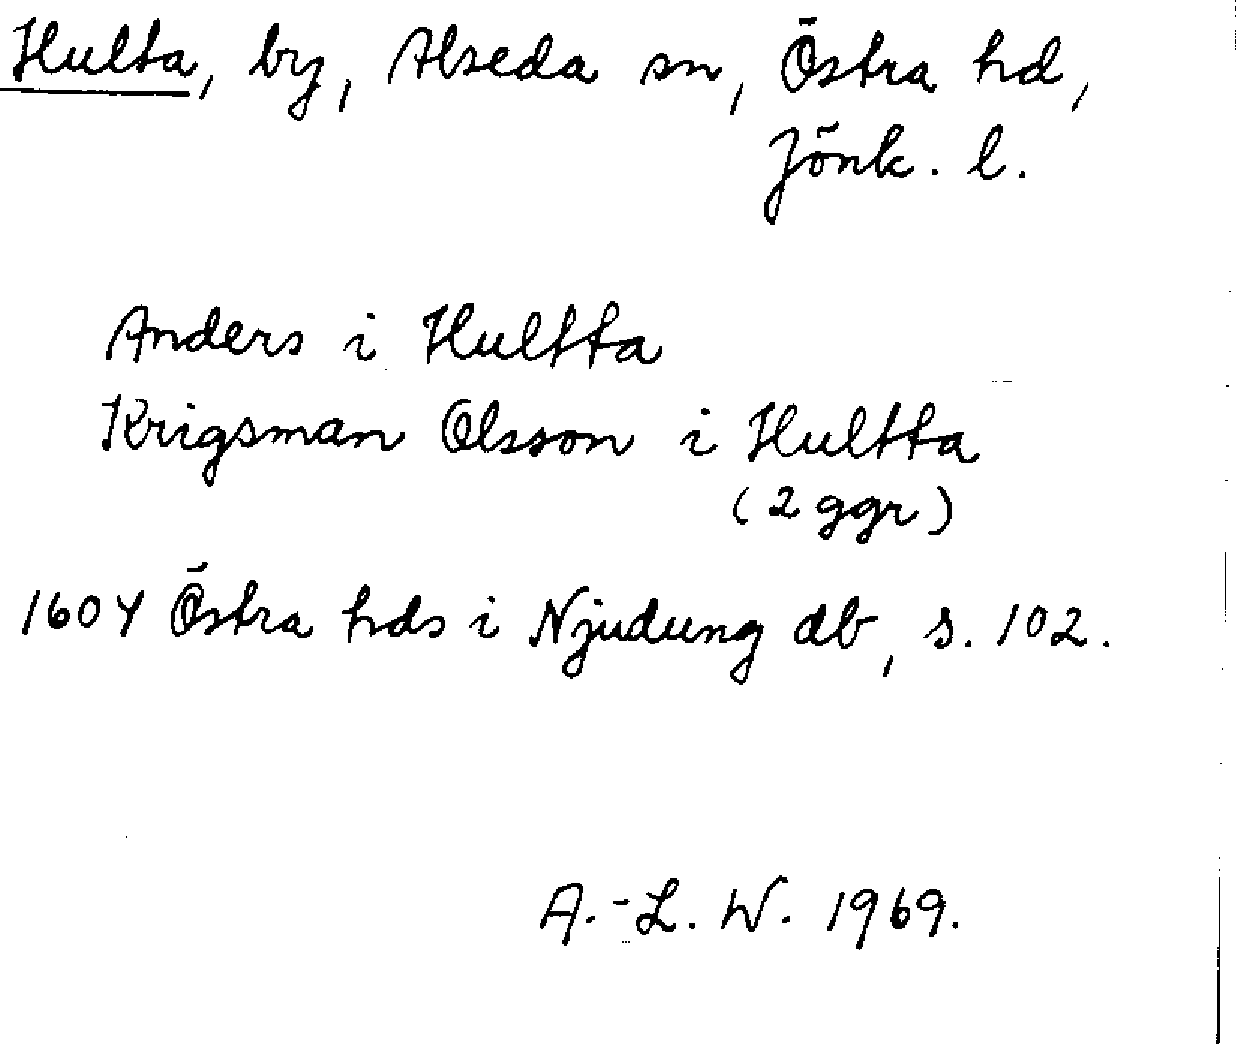 Hulta, by, Alseda sn, Östra hd,
Jönk. l.
Anders i Hultta
Krigsman Olsson i Hultta
(2 ggr)
1604 Östra hds i Njudung db, s. 102.
A.-L. W. 1969.